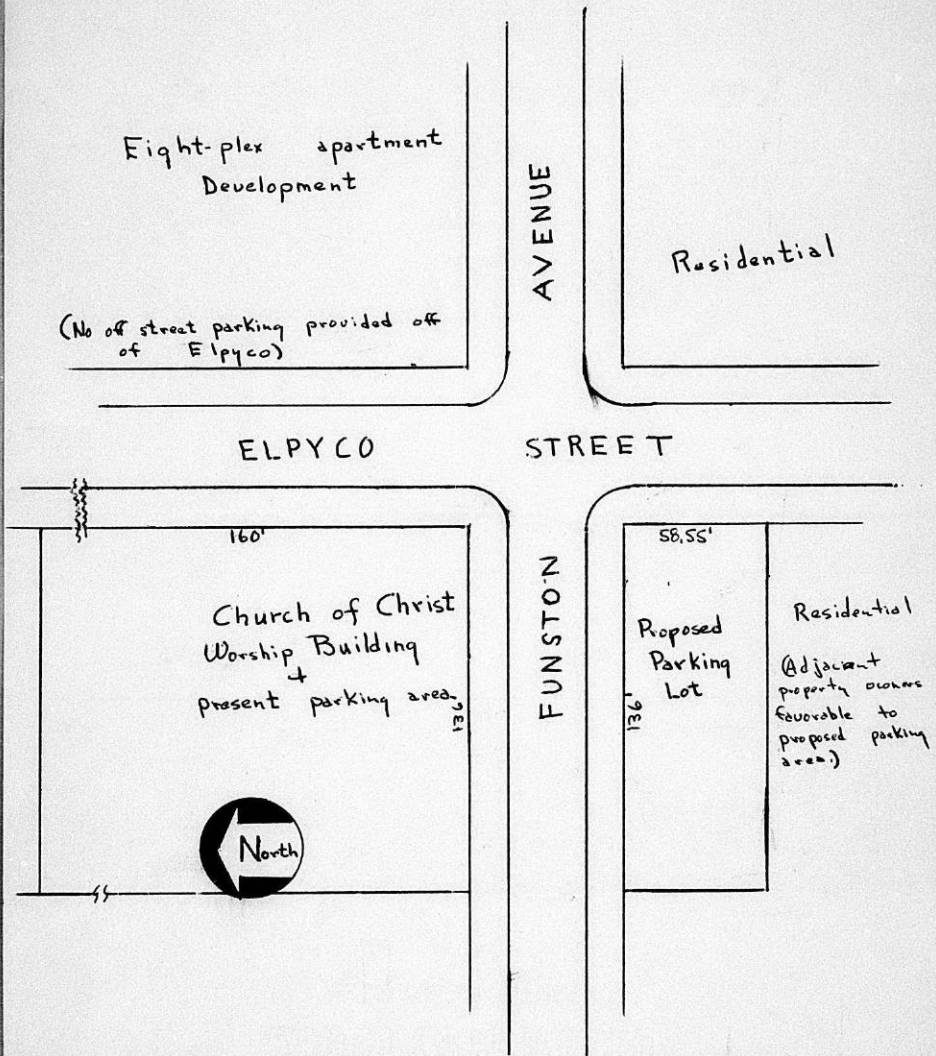 Eight-plex apartment
Development
(No off street parking provided off
of Elpyco)
AVENUE
Residential
ELPYCO STREET
160'
58.55'
Church of Christ
Worship Building
+
present parking area
136'
FUNSTON
136'
Proposed
Parking
Lot
Residential
(Adjacent
property owners
favorable to
proposed parking
area.)
North